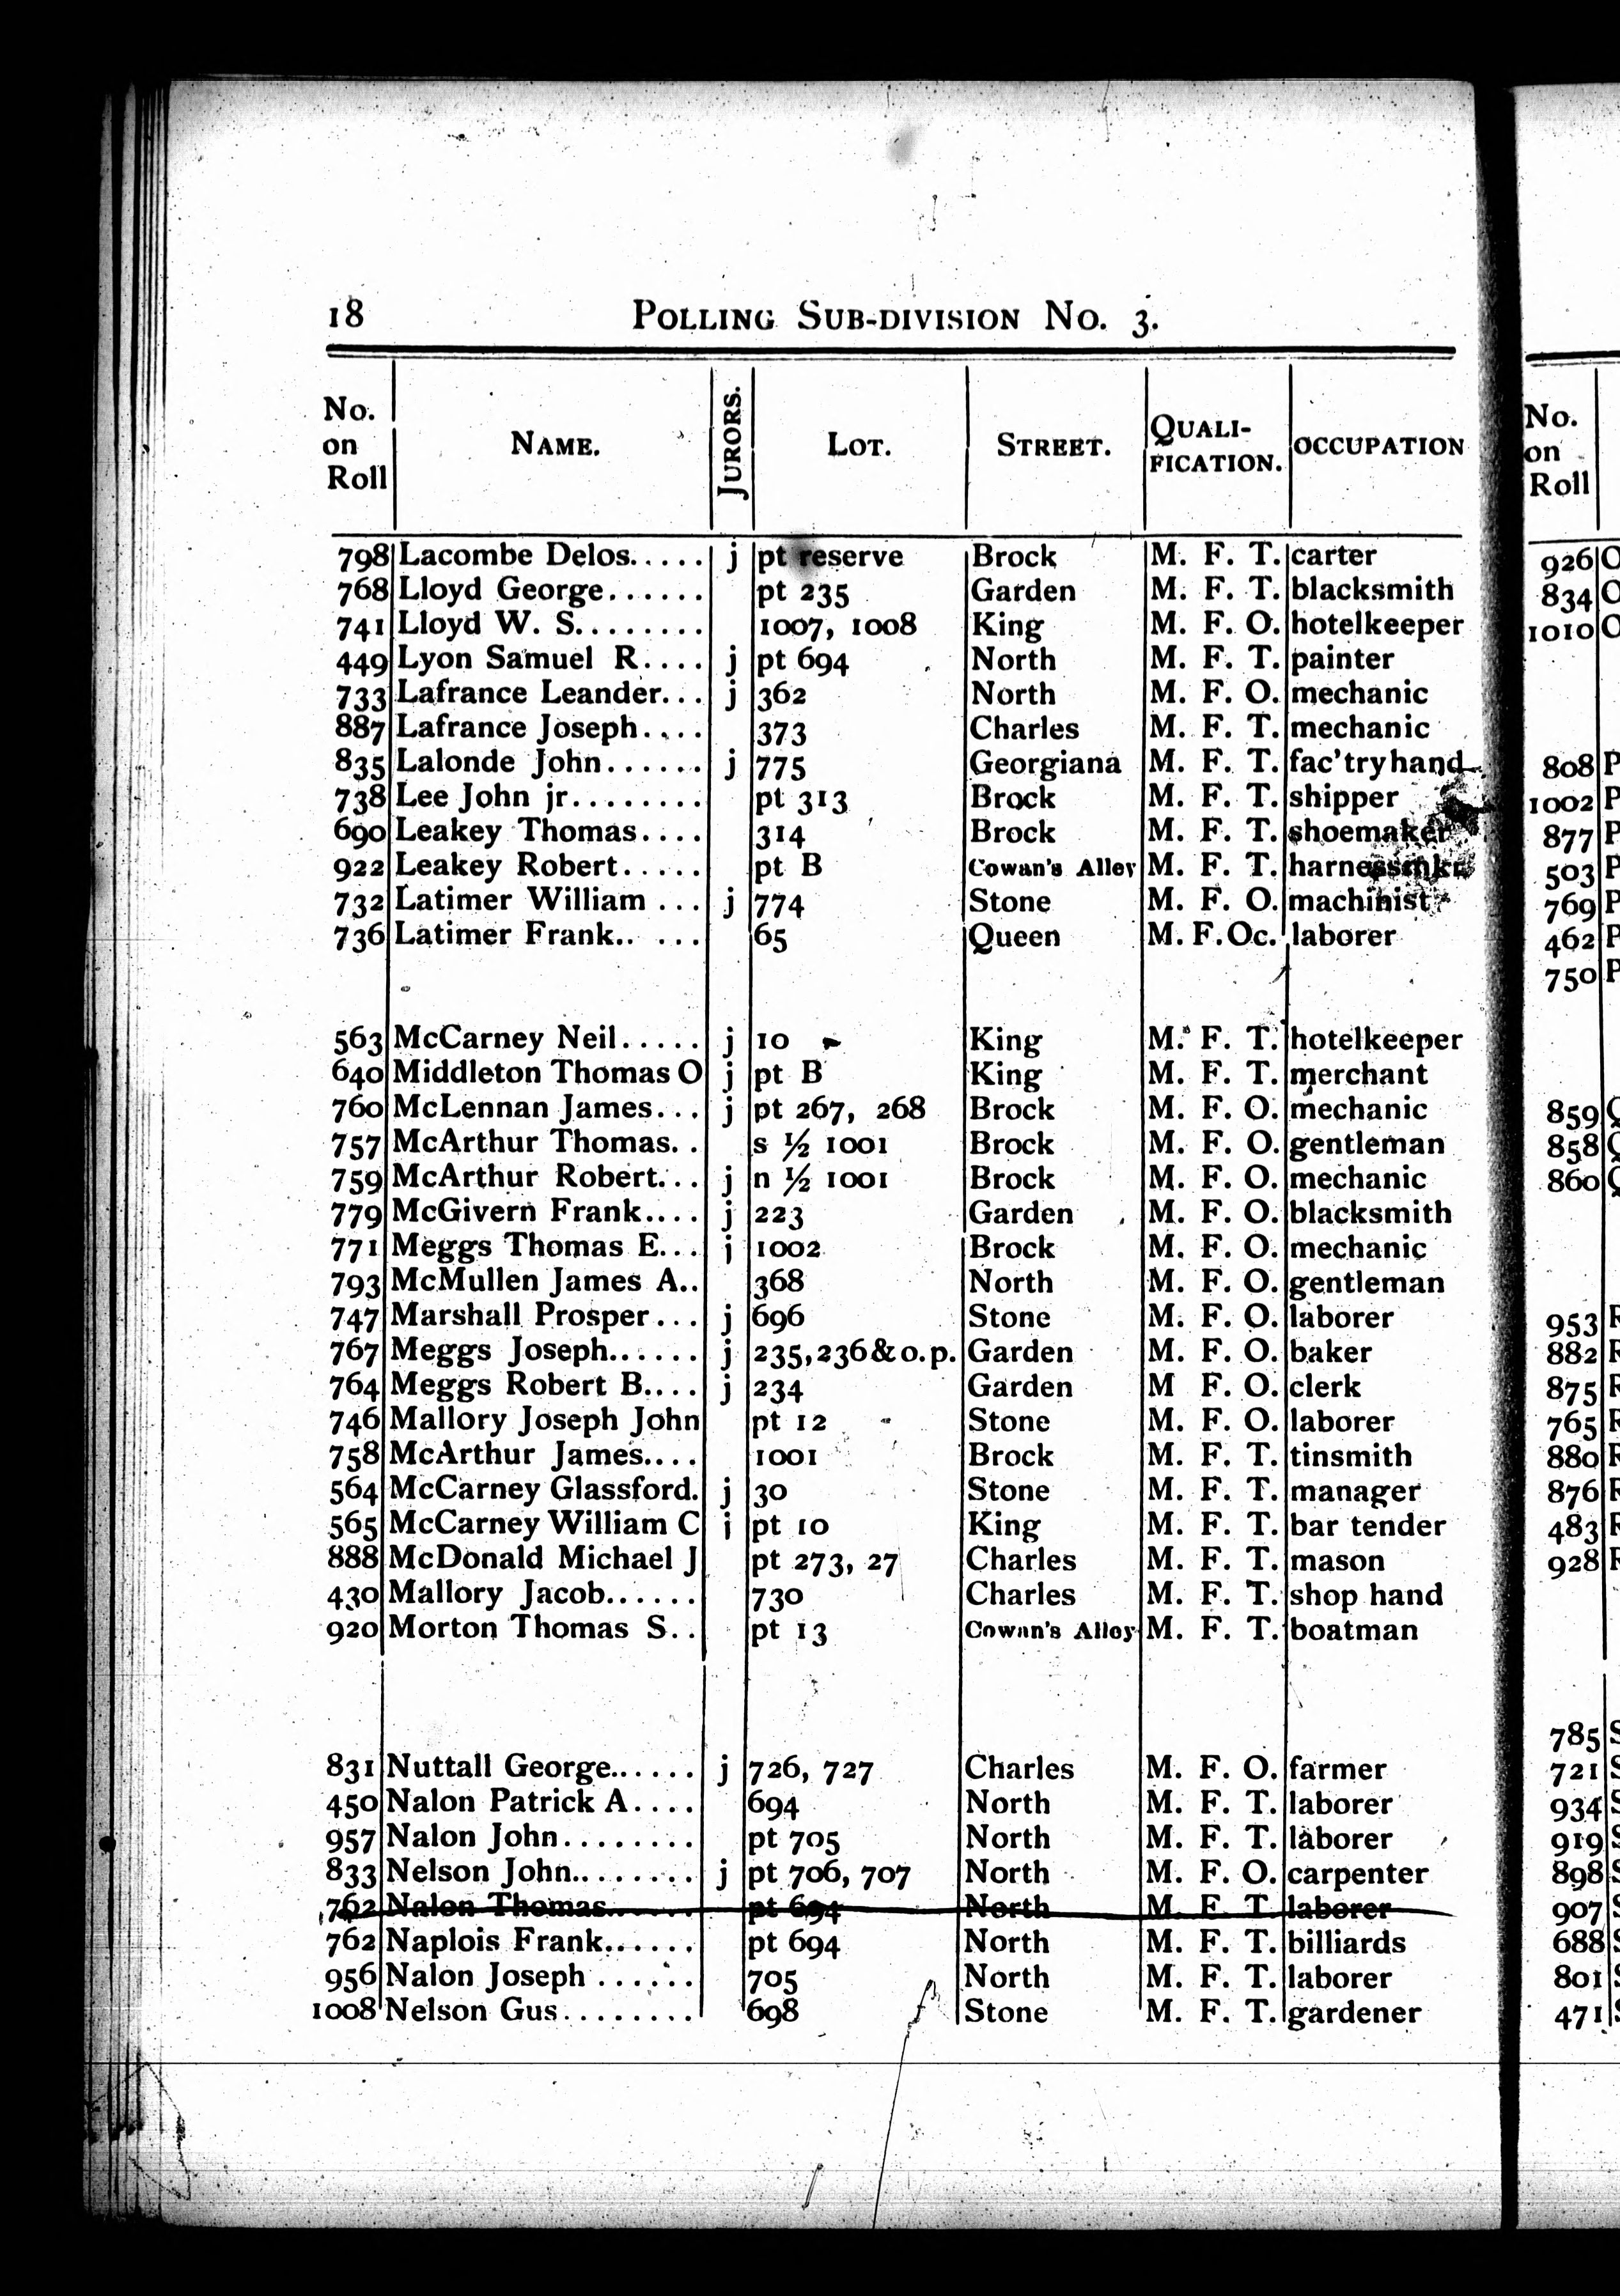 18 POLLING SUB-DIVISION No. 3.
No. on Roll NAME. JURORS. LOT. STREET. QUALI-FICATION. OCCUPATION
798 Lacombe Delos..... j pt reserve Brock M. F. T. carter
768 Lloyd George...... pt 235 Garden M. F. T. blacksmith
741 Lloyd W. S........ 1007, 1008 King M. F. O. hotelkeeper
449 Lyon Samuel R.... j pt 694 North M. F. T. painter
733 Lafrance Leander... j 362 North M. F. O. mechanic
887 Lafrance Joseph.... 373 Charles M. F. T. mechanic
835 Lalonde John...... j 775 Georgiana M. F. T. fac'try hand
738 Lee John jr........ pt 313 Brock M. F. T. shipper
690 Leakey Thomas.... 314 Brock M. F. T. shoemaker
922 Leakey Robert..... pt B Cowan's Alley M. F. T. harnessmkr
732 Latimer William ... j 774 Stone M. F. O. machinist
736 Latimer Frank.. ... 65 Queen M. F. Oc. laborer
563 McCarney Neil..... j 10 King M. F. T. hotelkeeper
640 Middleton Thomas O j pt B King M. F. T. merchant
760 McLennan James... j pt 267, 268 Brock M. F. O. mechanic
757 McArthur Thomas.. s ½ 1001 Brock M. F. O. gentleman
759 McArthur Robert... j n ½ 1001 Brock M. F. O. mechanic
779 McGivern Frank.... j 223 Garden M. F. O. blacksmith
771 Meggs Thomas E... j 1002 Brock M. F. O. mechanic
793 McMullen James A.. 368 North M. F. O. gentleman
747 Marshall Prosper... j 696 Stone M. F. O. laborer
767 Meggs Joseph...... j 235,236 & o.p. Garden M. F. O. baker
764 Meggs Robert B.... j 234 Garden M F. O. clerk
746 Mallory Joseph John pt 12 Stone M. F. O. laborer
758 McArthur James.... 1001 Brock M. F. T. tinsmith
564 McCarney Glassford. j 30 Stone M. F. T. manager
565 McCarney William C j pt 10 King M. F. T. bar tender
888 McDonald Michael J pt 273, 27 Charles M. F. T. mason
430 Mallory Jacob...... 730 Charles M. F. T. shop hand
920 Morton Thomas S.. pt 13 Cowan's Alley M. F. T. boatman
831 Nuttall George...... j 726, 727 Charles M. F. O. farmer
450 Nalon Patrick A.... 694 North M. F. T. laborer
957 Nalon John........ pt 705 North M. F. T. laborer
833 Nelson John........ j pt 706, 707 North M. F. O. carpenter
762 Nalon Thomas...... pt 694 North M. F. T. laborer
762 Naplois Frank...... pt 694 North M. F. T. billiards
956 Nalon Joseph ...... 705 North M. F. T. laborer
1008 Nelson Gus........ 698 Stone M. F. T. gardener
No. on Roll
926 O
834 O
1010 O
808 P
1002 P
877 P
503 P
769 P
462 P
750 P
859 Q
858 Q
860 Q
953 R
882 R
875 R
765 R
880 R
876 R
483 R
928 R
785 S
721 S
934 S
919 S
898 S
907 S
688 S
801 S
471 S